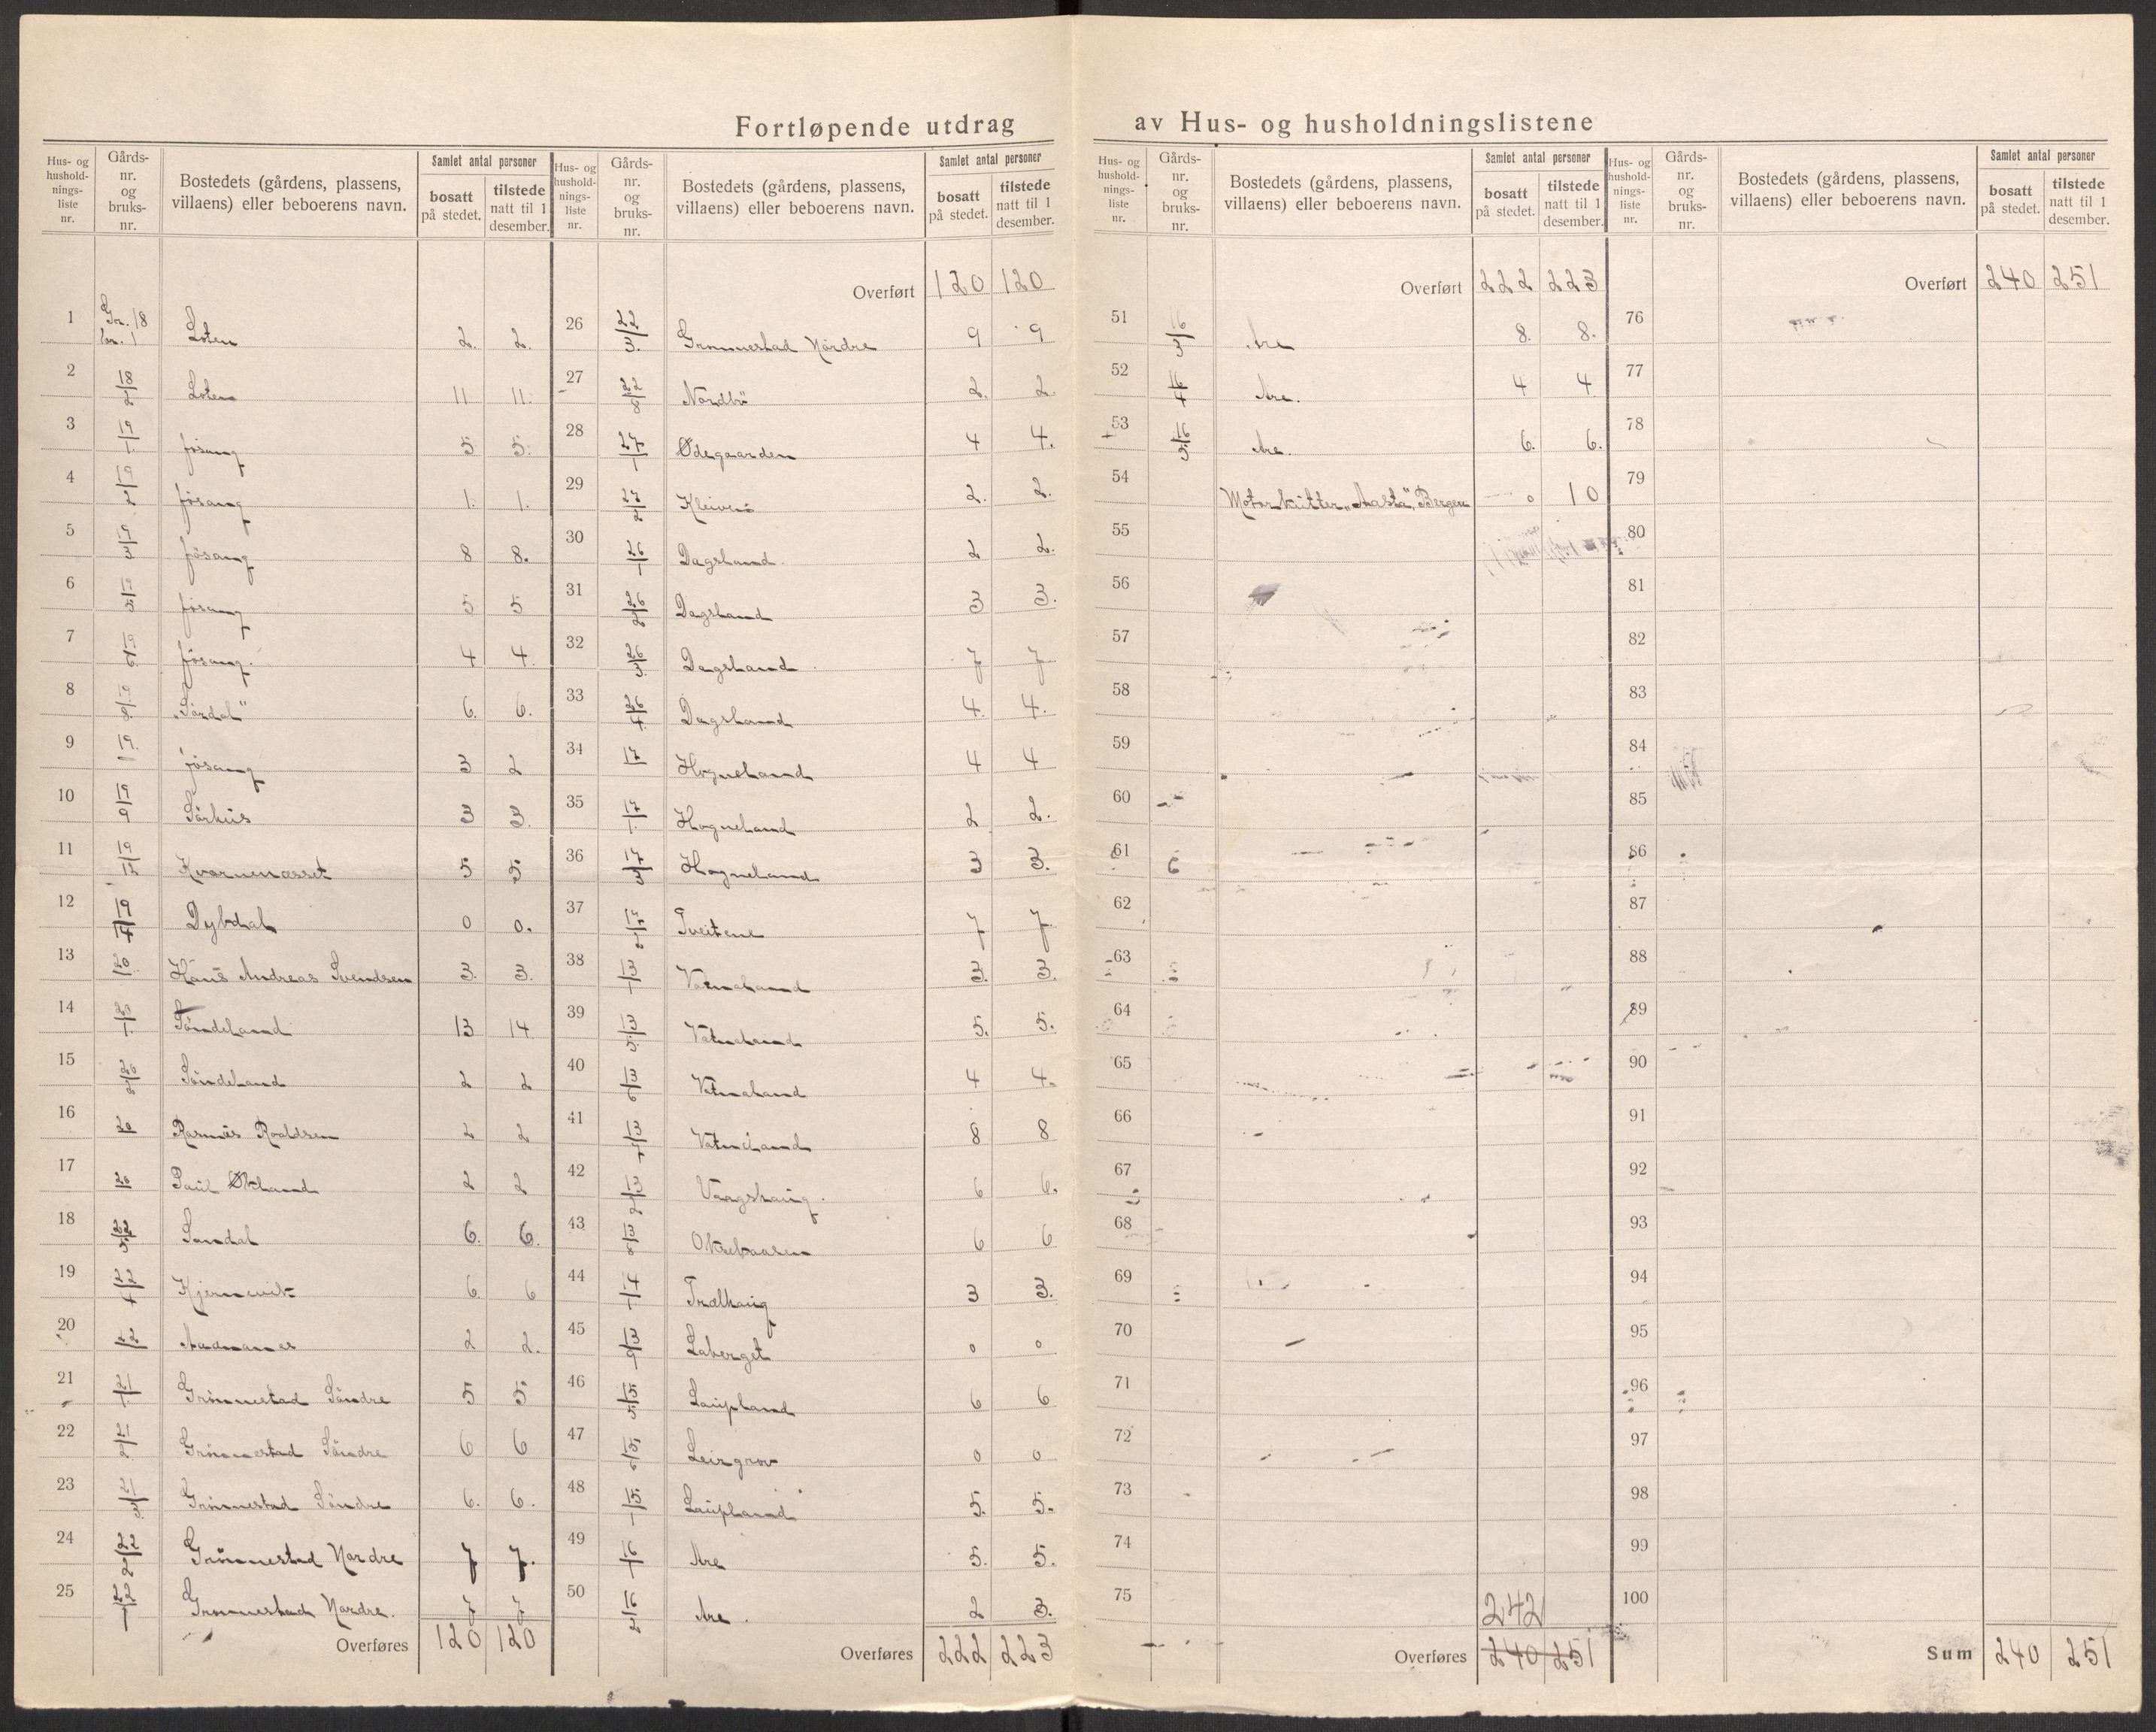 Fortløpende utdrag av Hus- og husholdningslistene
Hus- og husholdnings- liste nr. | Gårds- nr. og bruks- nr. | Bostedets (gårdens, plassens, villaens) eller beboerens navn. | Samlet antal personer: bosatt på stedet. | tilstede natt til 1 desember.
1 Gr. 18 br. 1 Loten 2. 2.
2 18/2 Loten 11 11.
3 19/1 Jøsang 5 5.
4 19/2 Jøsang 1. 1.
5 19/3 Jøsang 8 8.
6 19/5 Jøsang 5 5
7 19/6 Jøsang. 4 4.
8 19/8 "Sørdal" 6. 6.
9 19. Jøsang 3 2
10 19/9 Sørhus 3 3.
11 19/12 Kvernenesset 5 5
12 19/14 Dybdal 0 0.
13 20 Hans Andreas Svendsen 3. 3.
14 20/1 Søndeland 13 14
15 20/2 Søndeland 2 2
16 20 Rasmus Roaldsen 2 2
17 20 Paul Økland 2 2
18 22/5 Sandal 6. 6.
19 22/4 Hjernevik 6. 6
20 22 2 2.
21 21/1 Grønnestad Søndre 5 5
22 21/2 Grønnestad Søndre 6 6
23 21/3 Grønnestad Søndre 6. 6.
24 22/2 Grønnestad Nordre 7 7.
25 22/1 Grønnestad Nordre. 7 7
Overføres 120 120
Hus- og husholdnings- liste nr. | Gårds- nr. og bruks- nr. | Bostedets (gårdens, plassens, villaens) eller beboerens navn. | Samlet antal personer: bosatt på stedet. | tilstede natt til 1 desember.
Overført 120 120
26 22/3. Grønnestad Nordre 9 9
27 22/8 Nordbø 2. 2.
28 27/1 Ødegaarden 4 4.
29 27/2 2. 2.
30 26/1 Dagsland. 2 2.
31 26/2 Dagsland 3 3.
32 26/3 Dagsland. 7 7
33 26/4. Dagsland 4. 4.
34 17 Hogneland 4 4
35 17/1. Hogneland 2 2.
36 17/3 Hogneland 3 3.
37 17/2 Tveitene 7 7.
38 13/1 Vatneland 3. 3.
39 13/5. Vatneland 5. 5.
40 13/6 Vatneland 4 4.
41 13/7 Vatneland 8 8
42 13/2 Vaagshaug. 6 6.
43 13/8 6 6
44 14/1 Trælhaug 3 3.
45 13/9 Laberget 0 0
46 15/5 Laupland 6 6
47 15/6 Leirgrov 0 0
48 15/1 Laupland 5. 5.
49 16/1 Are 5. 5.
50 16/2 Are. 2 3.
Overføres 222 223
Hus- og husholdnings- liste nr. | Gårds- nr. og bruks- nr. | Bostedets (gårdens, plassens, villaens) eller beboerens navn. | Samlet antal personer: bosatt på stedet. | tilstede natt til 1 desember.
Overført 222 223
51 16/3 Are 8. 8.
52 16/4 Are. 4 4
53 16/5. Are. 6. 6.
54 Motorkutter "Aasta", Bergen 0 10
55
56
57
58
59
60
61
62
63
64
65
66
67
68
69
70
71
72
73
74
75
242
Overføres 240 251
Hus- og husholdnings- liste nr. | Gårds- nr. og bruks- nr. | Bostedets (gårdens, plassens, villaens) eller beboerens navn. | Samlet antal personer: bosatt på stedet. | tilstede natt til 1 desember.
Overført 240 251
76
77
78
79
80
81
82
83
84
85
86
87
88
89
90
91
92
93
94
95
96
97
98
99
100
Sum 240 251